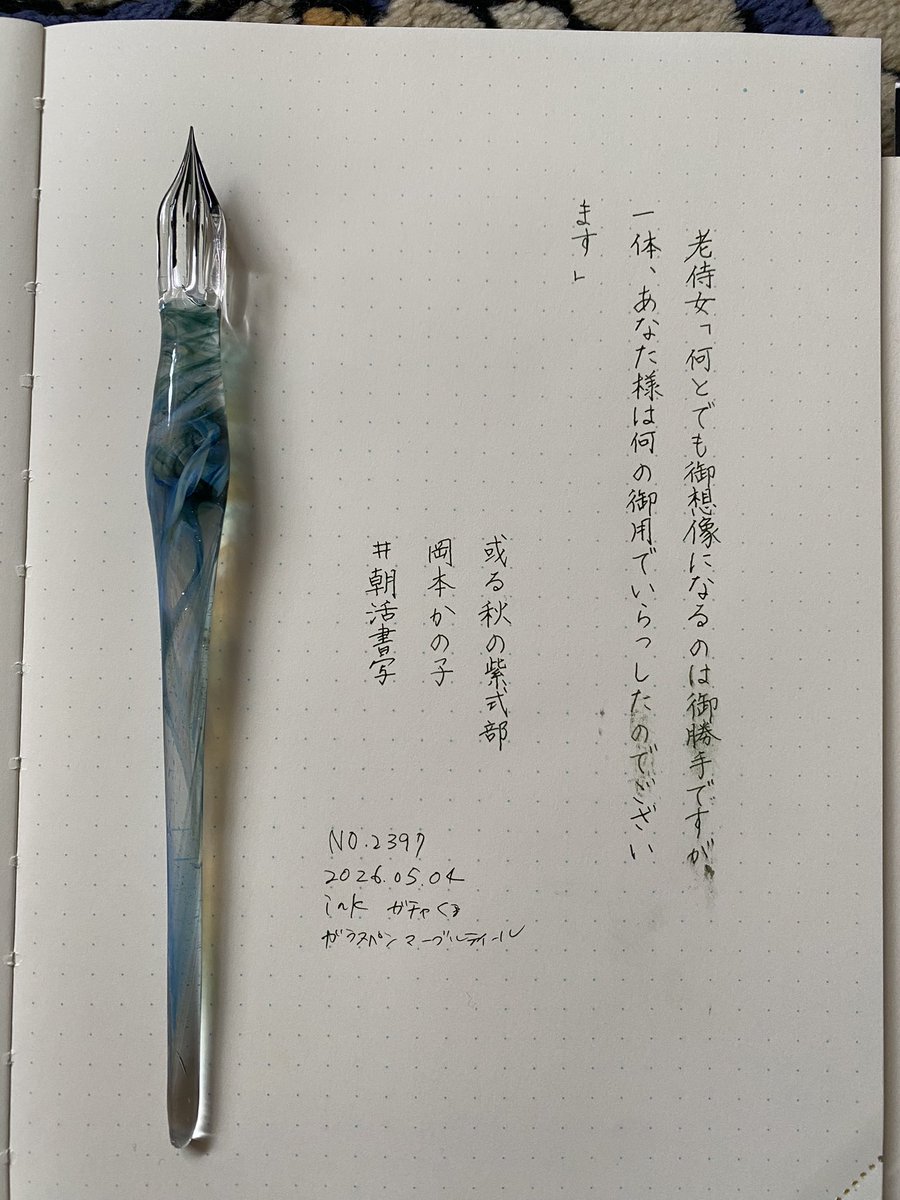 老侍女「何とでも御想像になるのは御勝手ですが、
一体、あなた様は何の御用でいらっしたのでござい
ます」
或る秋の紫式部
岡本かの子
#朝活書写
NO.2397
2026.05.04
ink ガチャくろ
ガラスペン マーブルティール